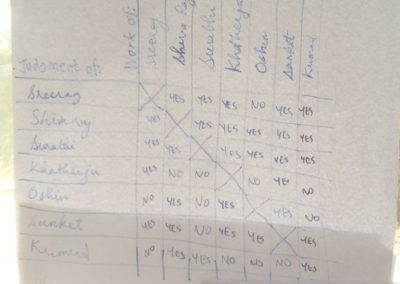 Work of:
Judgment of: Sreerag Swathi Khatheeja Oshin Sanket Kumud
Sreerag YES YES YES NO YES YES
YES YES YES YES YES YES
Swathi YES YES YES YES YES YES
Khatheeja YES NO NO NO YES NO
Oshin NO YES NO YES YES NO
Sanket YES YES NO YES YES YES
Kumud NO YES YES NO NO NO YES